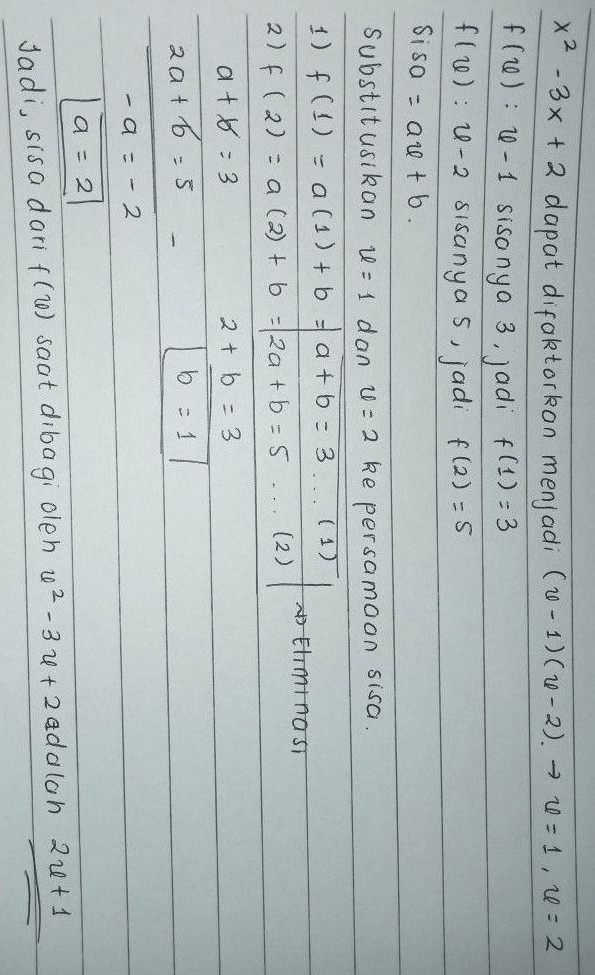 x² - 3x + 2 dapat difaktorkan menjadi (x-1)(x-2). → x = 1, x = 2
f(x) : x - 1 sisanya 3, jadi f(1) = 3
f(x) : x - 2 sisanya 5, jadi f(2) = 5
Sisa = ax + b.
Substitusikan x = 1 dan x = 2 ke persamaan sisa.
1) f(1) = a(1) + b = a + b = 3 .... (1)
2) f(2) = a(2) + b = 2a + b = 5 .... (2) → Eliminasi
a + b = 3 2 + b = 3
2a + b = 5 - b = 1
-a = -2
a = 2
Jadi, sisa dari f(x) saat dibagi oleh x² - 3x + 2 adalah 2x + 1